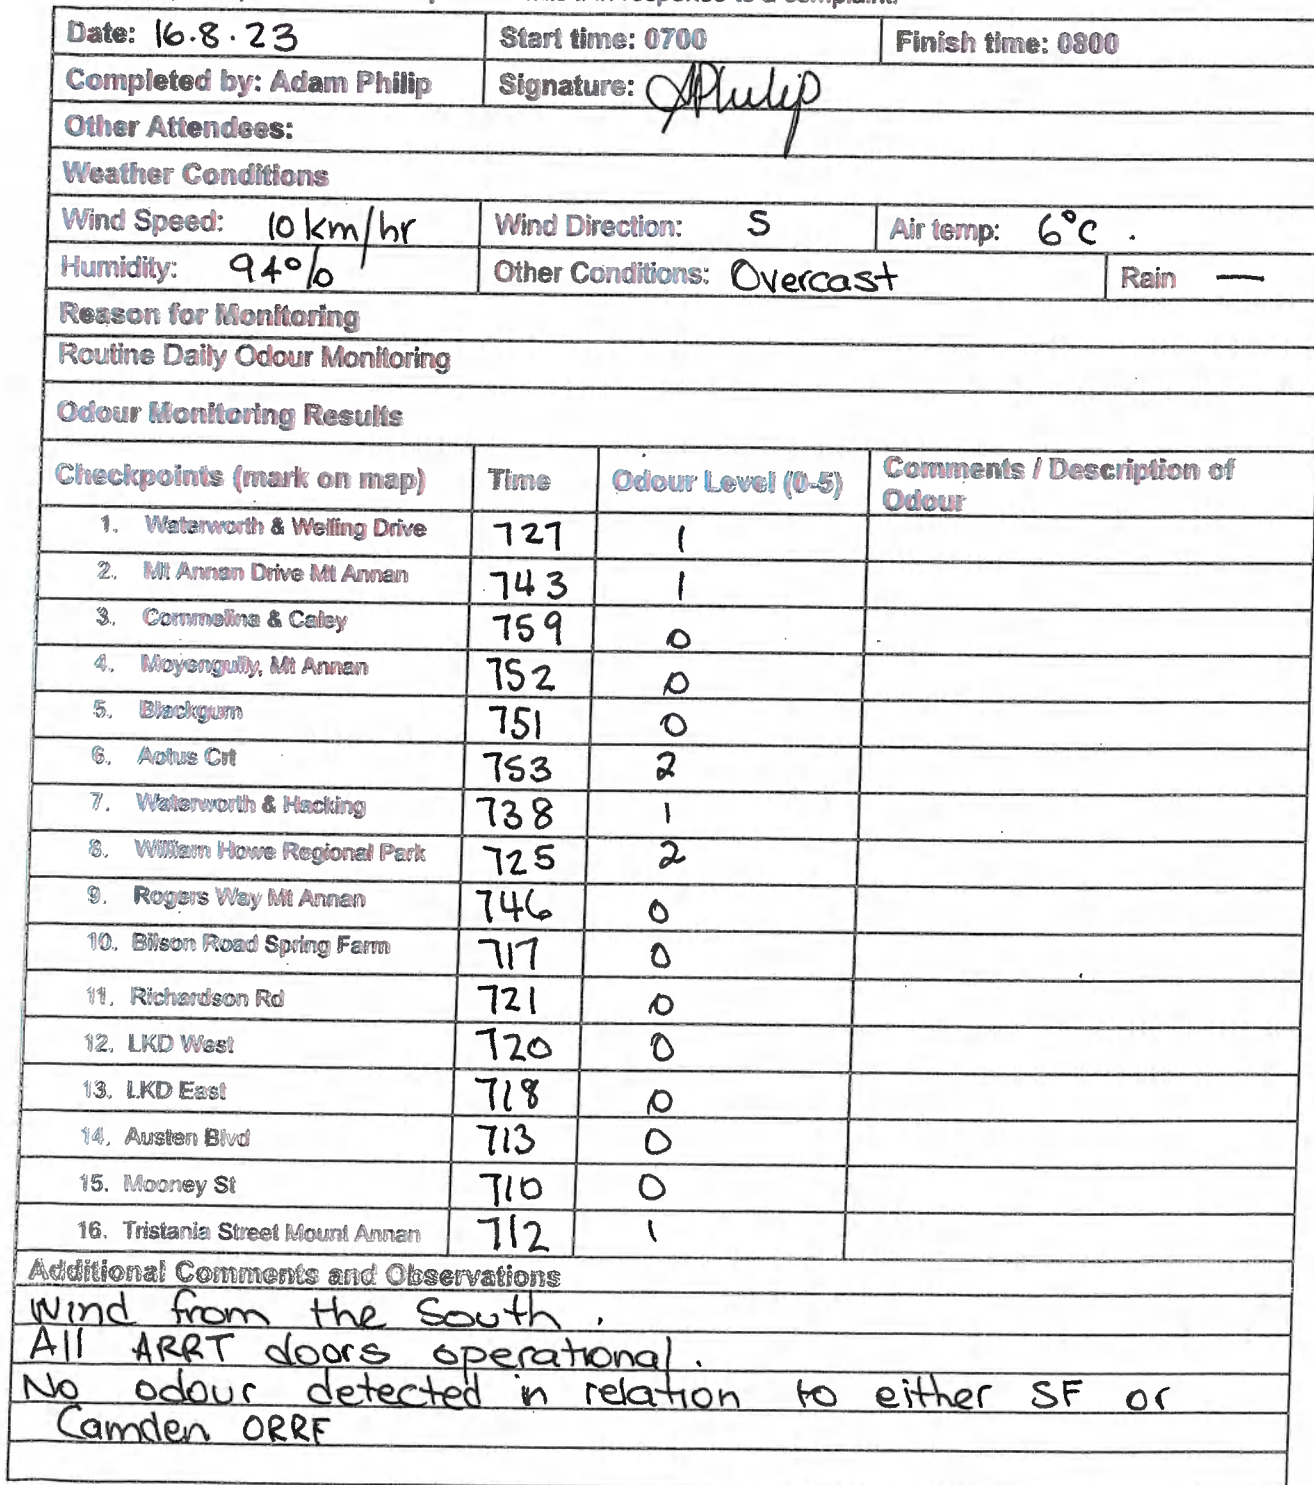 Date: 16.8.23 Start time: 0700 Finish time: 0800
Completed by: Adam Philip Signature: APhilip
Other Attendees:
Weather Conditions
Wind Speed: 10 km/hr Wind Direction: S Air temp: 6°C.
Humidity: 94% Other Conditions: Overcast Rain —
Reason for Monitoring
Routine Daily Odour Monitoring
Odour Monitoring Results
Checkpoints (mark on map) Time Odour Level (0-5) Comments / Description of
Odour
1. Waterworth & Welling Drive 727 1
2. Mt Annan Drive Mt Annan 743 1
3. Commelina & Caley 759 0
4. Moyengully, Mt Annan 752 0
5. Blackgum 751 0
6. Aotus Crt 753 2
7. Waterworth & Hacking 738 1
8. William Howe Regional Park 725 2
9. Rogers Way Mt Annan 746 0
10. Bilson Road Spring Farm 717 0
11. Richardson Rd 721 0
12. LKD West 720 0
13. LKD East 718 0
14. Austen Blvd 713 0
15. Mooney St 710 0
16. Tristania Street Mount Annan 712 1
Additional Comments and Observations
Wind from the South.
All ARRT doors operational.
No odour detected in relation to either SF or
Camden ORRF